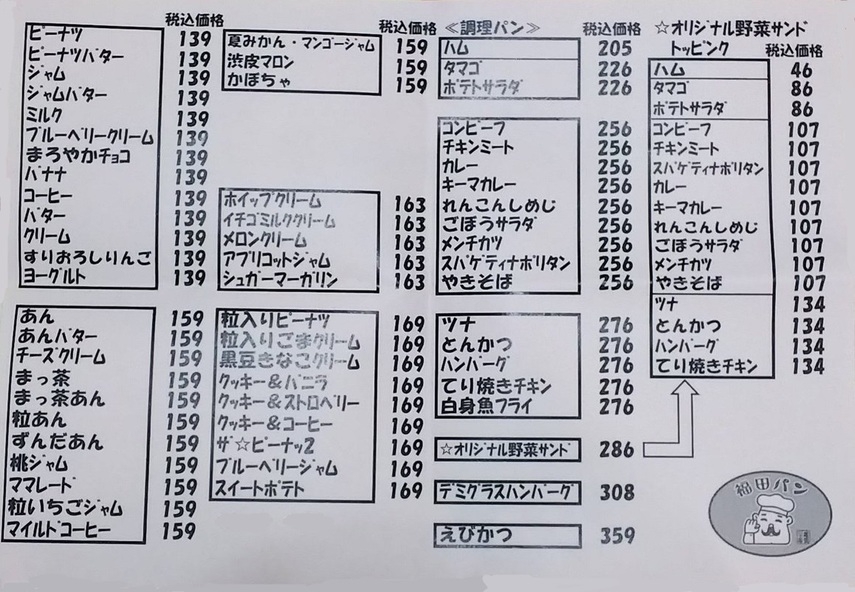 税込価格
ピーナツ 139
ピーナツバター 139
ジャム 139
ジャムバター 139
ミルク 139
ブルーベリークリーム 139
まろやかチョコ 139
バナナ 139
コーヒー 139
バター 139
クリーム 139
すりおろしりんご 139
ヨーグルト 139
あん 159
あんバター 159
チーズクリーム 159
まっ茶 159
まっ茶あん 159
粒あん 159
ずんだあん 159
桃ジャム 159
ママレード 159
粒いちごジャム 159
マイルドコーヒー 159
税込価格
夏みかん・マンゴージャム 159
渋皮マロン 159
かぼちゃ 159
ホイップクリーム 163
イチゴミルククリーム 163
メロンクリーム 163
アプリコットジャム 163
シュガーマーガリン 163
粒入りピーナツ 169
粒入りごまクリーム 169
黒豆きなこクリーム 169
クッキー&バニラ 169
クッキー&ストロベリー 169
クッキー&コーヒー 169
ザ☆ピーナッ2 169
ブルーベリージャム 169
スイートポテト 169
≪調理パン≫ 税込価格
ハム 205
タマゴ 226
ポテトサラダ 226
コンビーフ 256
チキンミート 256
カレー 256
キーマカレー 256
れんこんしめじ 256
ごぼうサラダ 256
メンチカツ 256
スパゲティナポリタン 256
やきそば 256
ツナ 276
とんかつ 276
ハンバーグ 276
てり焼きチキン 276
白身魚フライ 276
☆オリジナル野菜サンド 286
デミグラスハンバーグ 308
えびかつ 359
☆オリジナル野菜サンド
トッピング 税込価格
ハム 46
タマゴ 86
ポテトサラダ 86
コンビーフ 107
チキンミート 107
スパゲティナポリタン 107
カレー 107
キーマカレー 107
れんこんしめじ 107
ごぼうサラダ 107
メンチカツ 107
やきそば 107
ツナ 134
とんかつ 134
ハンバーグ 134
てり焼きチキン 134
福田パン